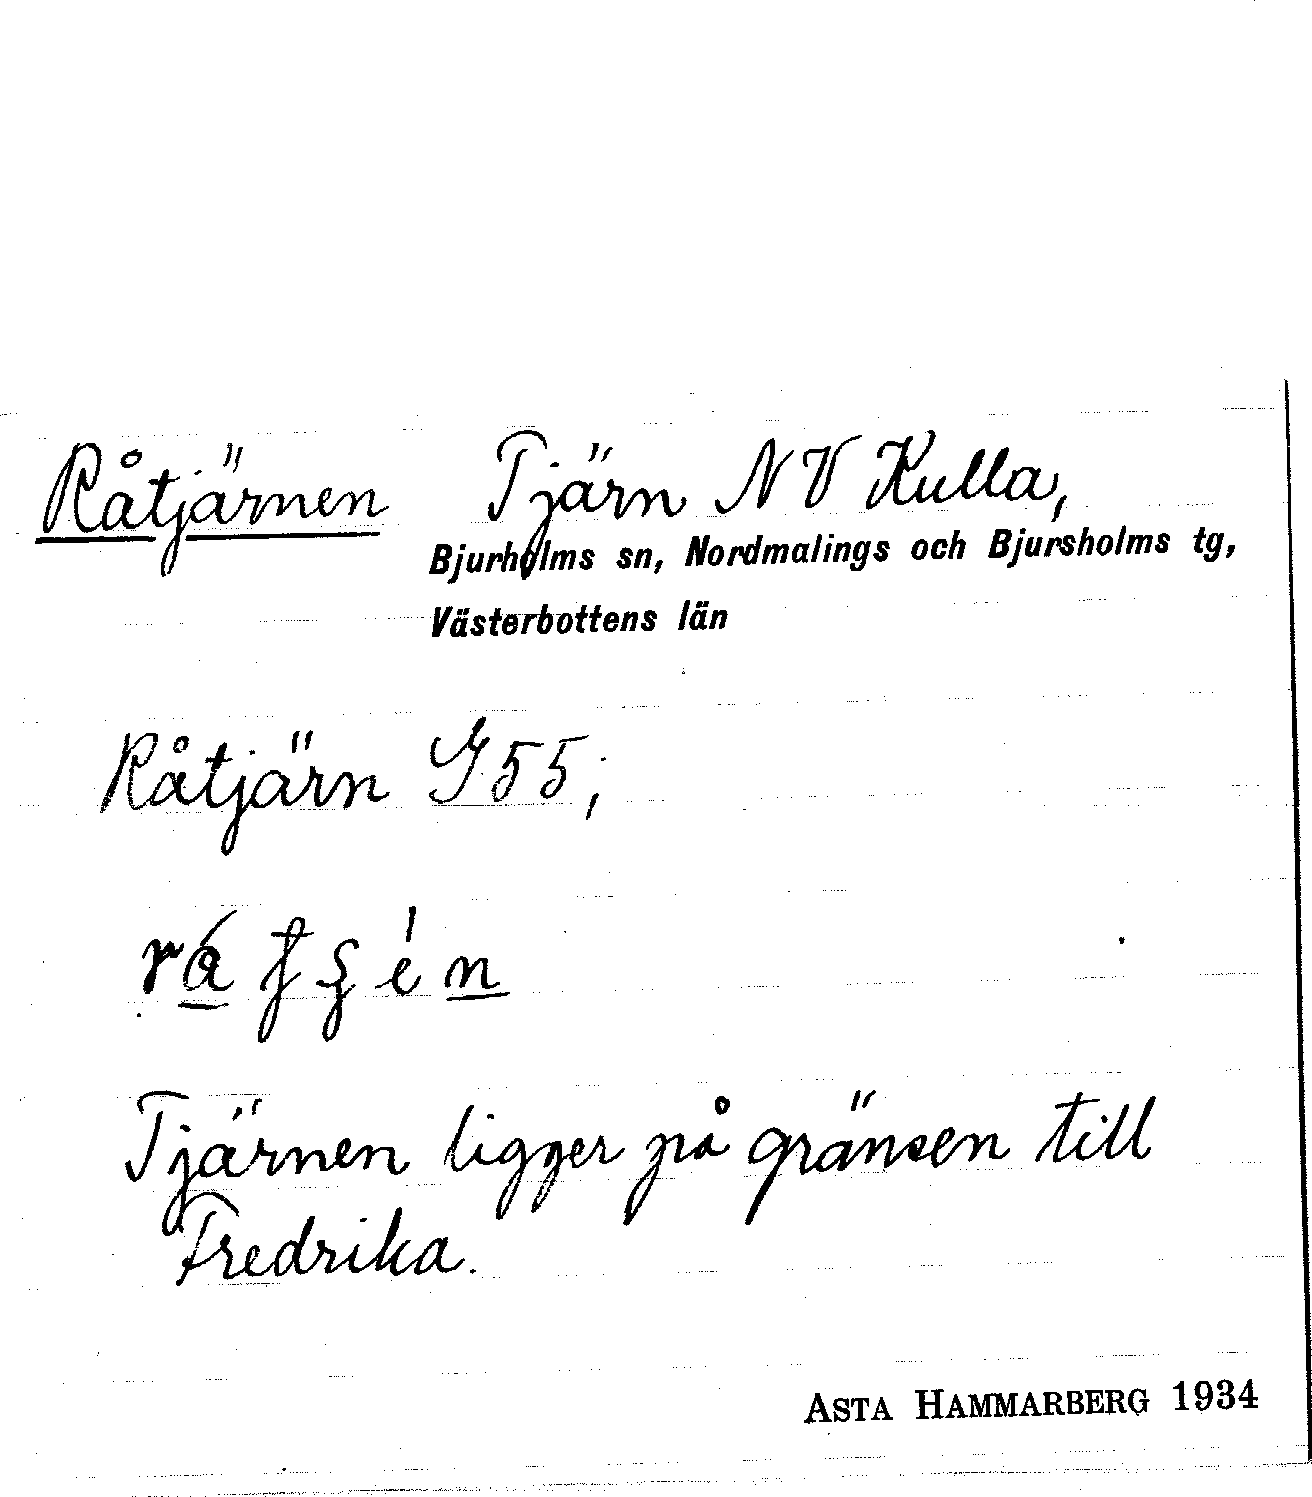 Råtjärnen Tjärn NV Kulla,
Bjurholms sn, Nordmalings och Bjursholms tg,
Västerbottens län
Råtjärn G55;
Tjärnen ligger på gränsen till
Fredrika.
ASTA HAMMARBERG 1934